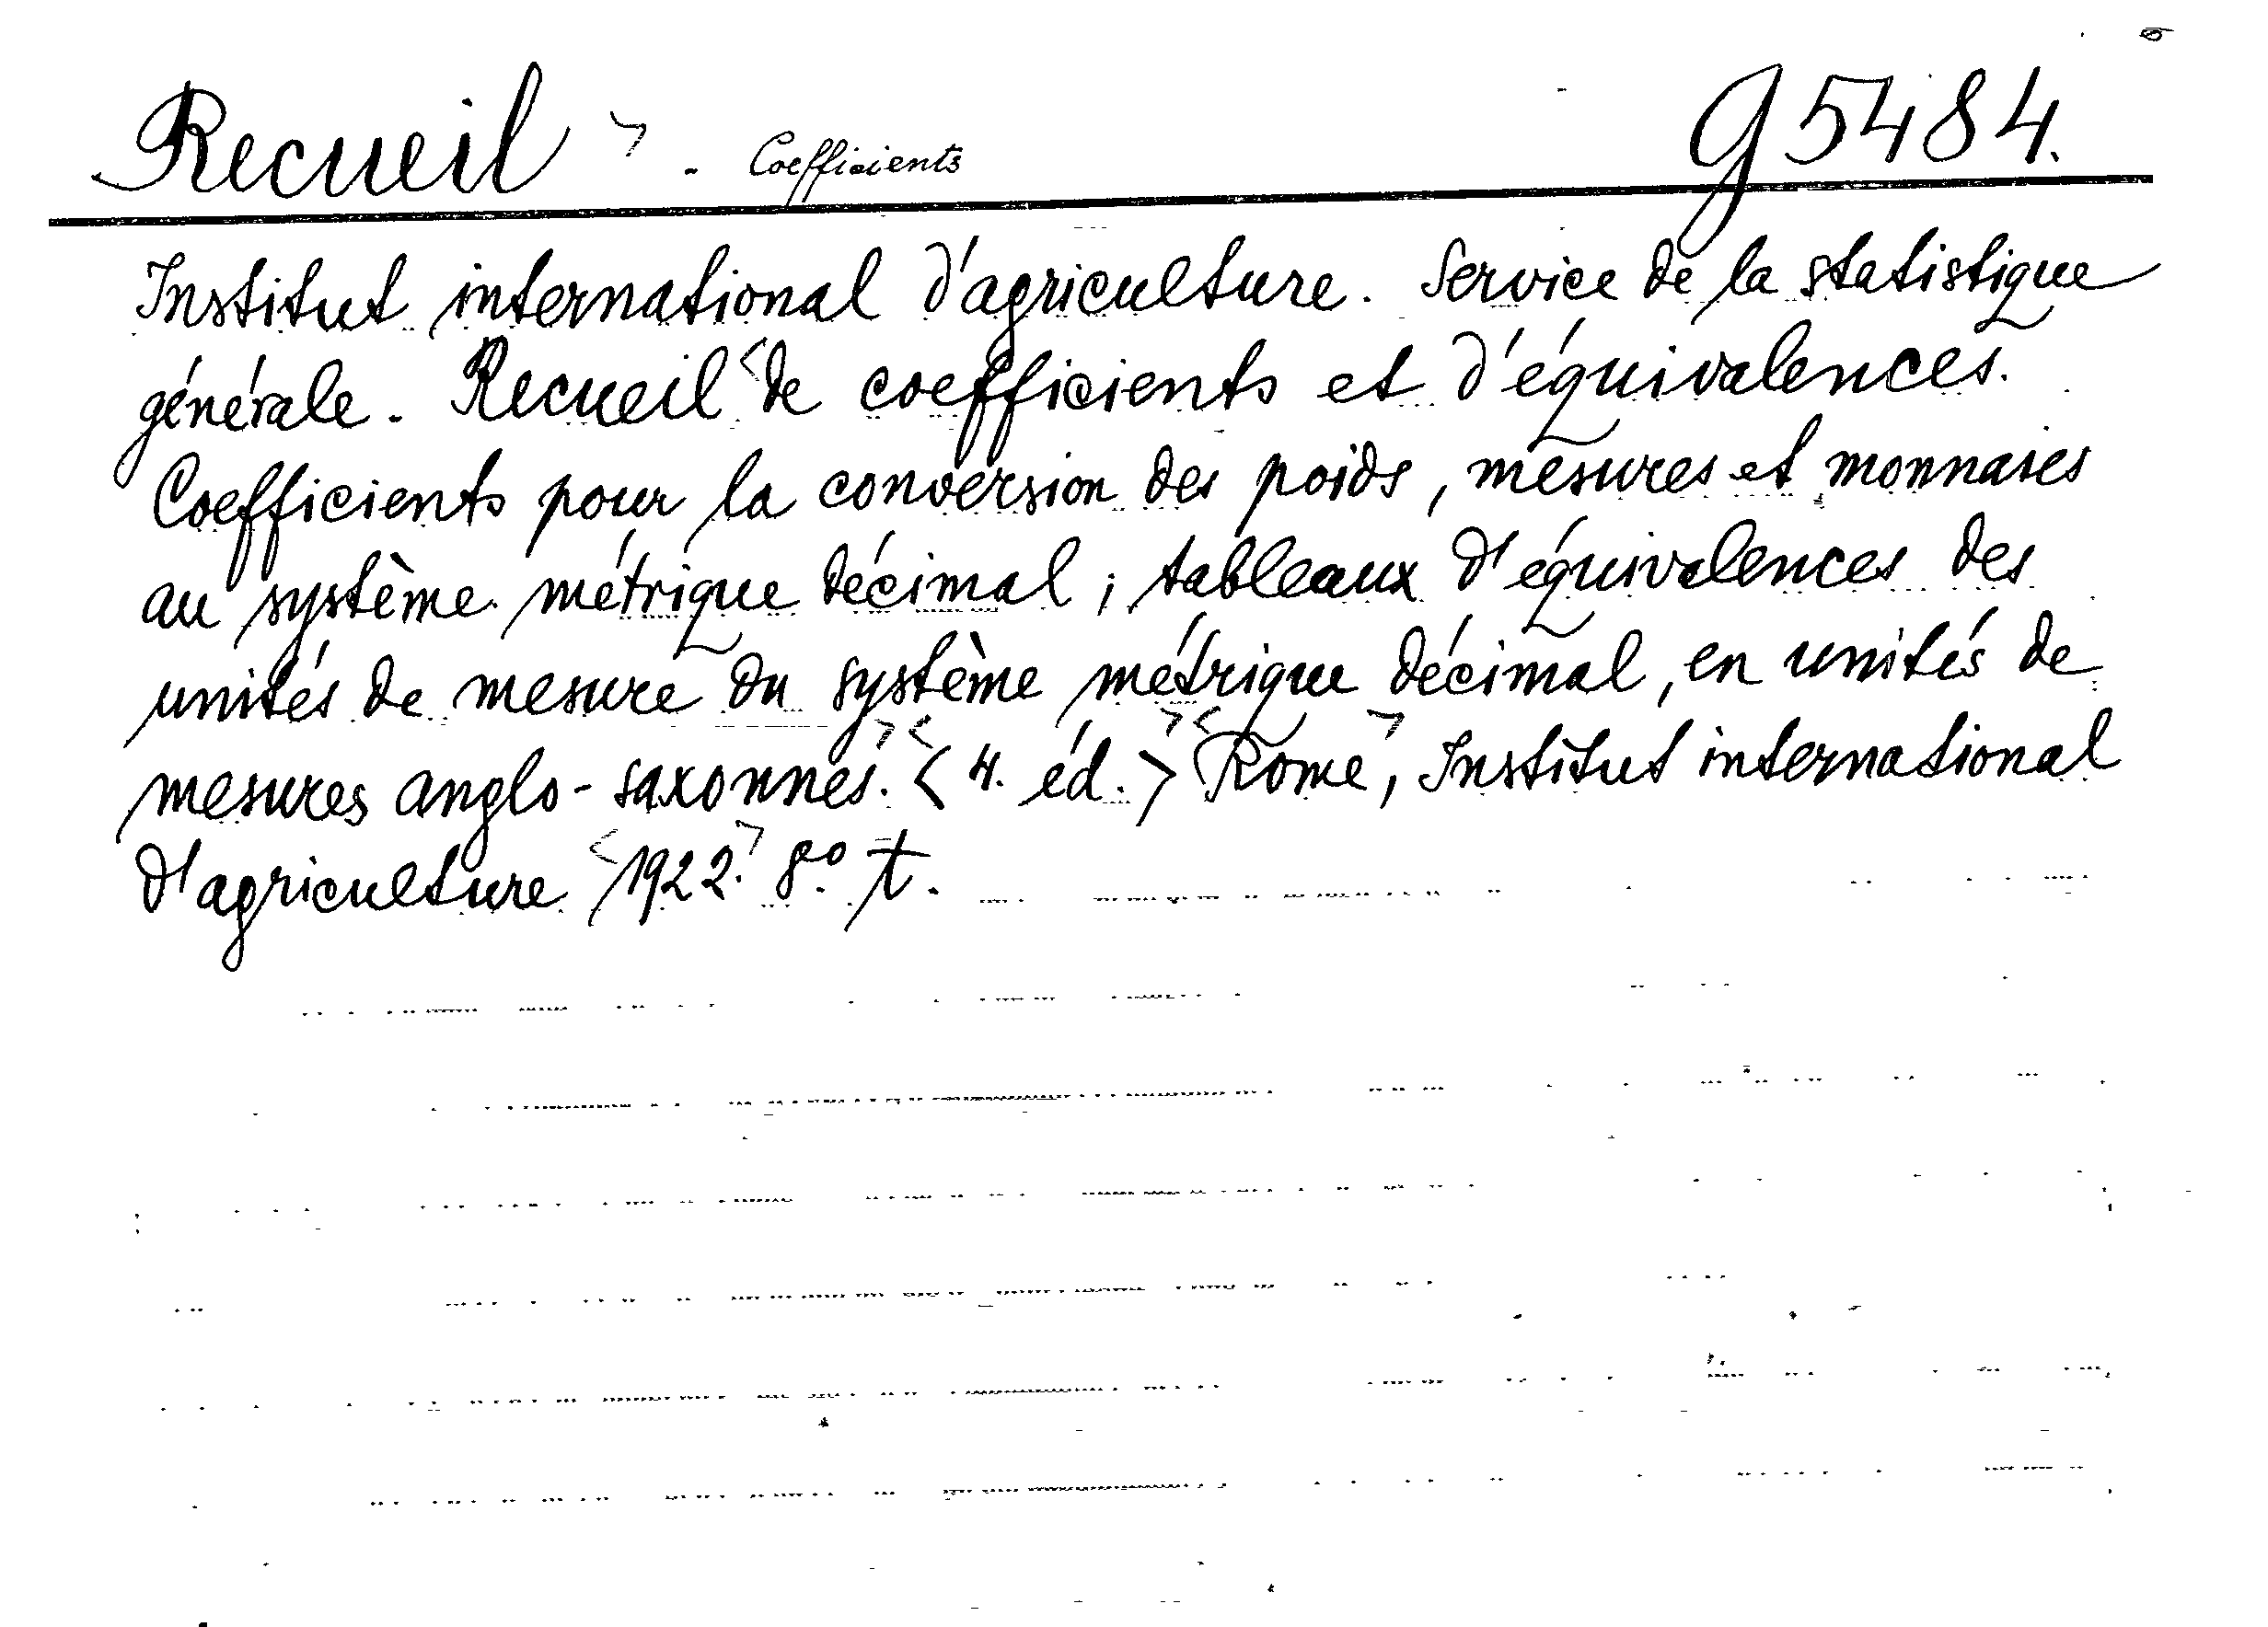 Recueil > . Coefficients g 5484.
Institut international d'agriculture. Service de la statistique
générale. Recueil < de coefficients et d'équivalences.
Coefficients pour la conversion des poids, mesures et monnaies
au système métrique décimal; tableaux d'équivalences des
unités de mesure du système métrique décimal, en unités de
mesures anglo-saxonnes. > < <4. éd.> > < Rome >, Institut international
d'agriculture < 1922. > 8.º t.